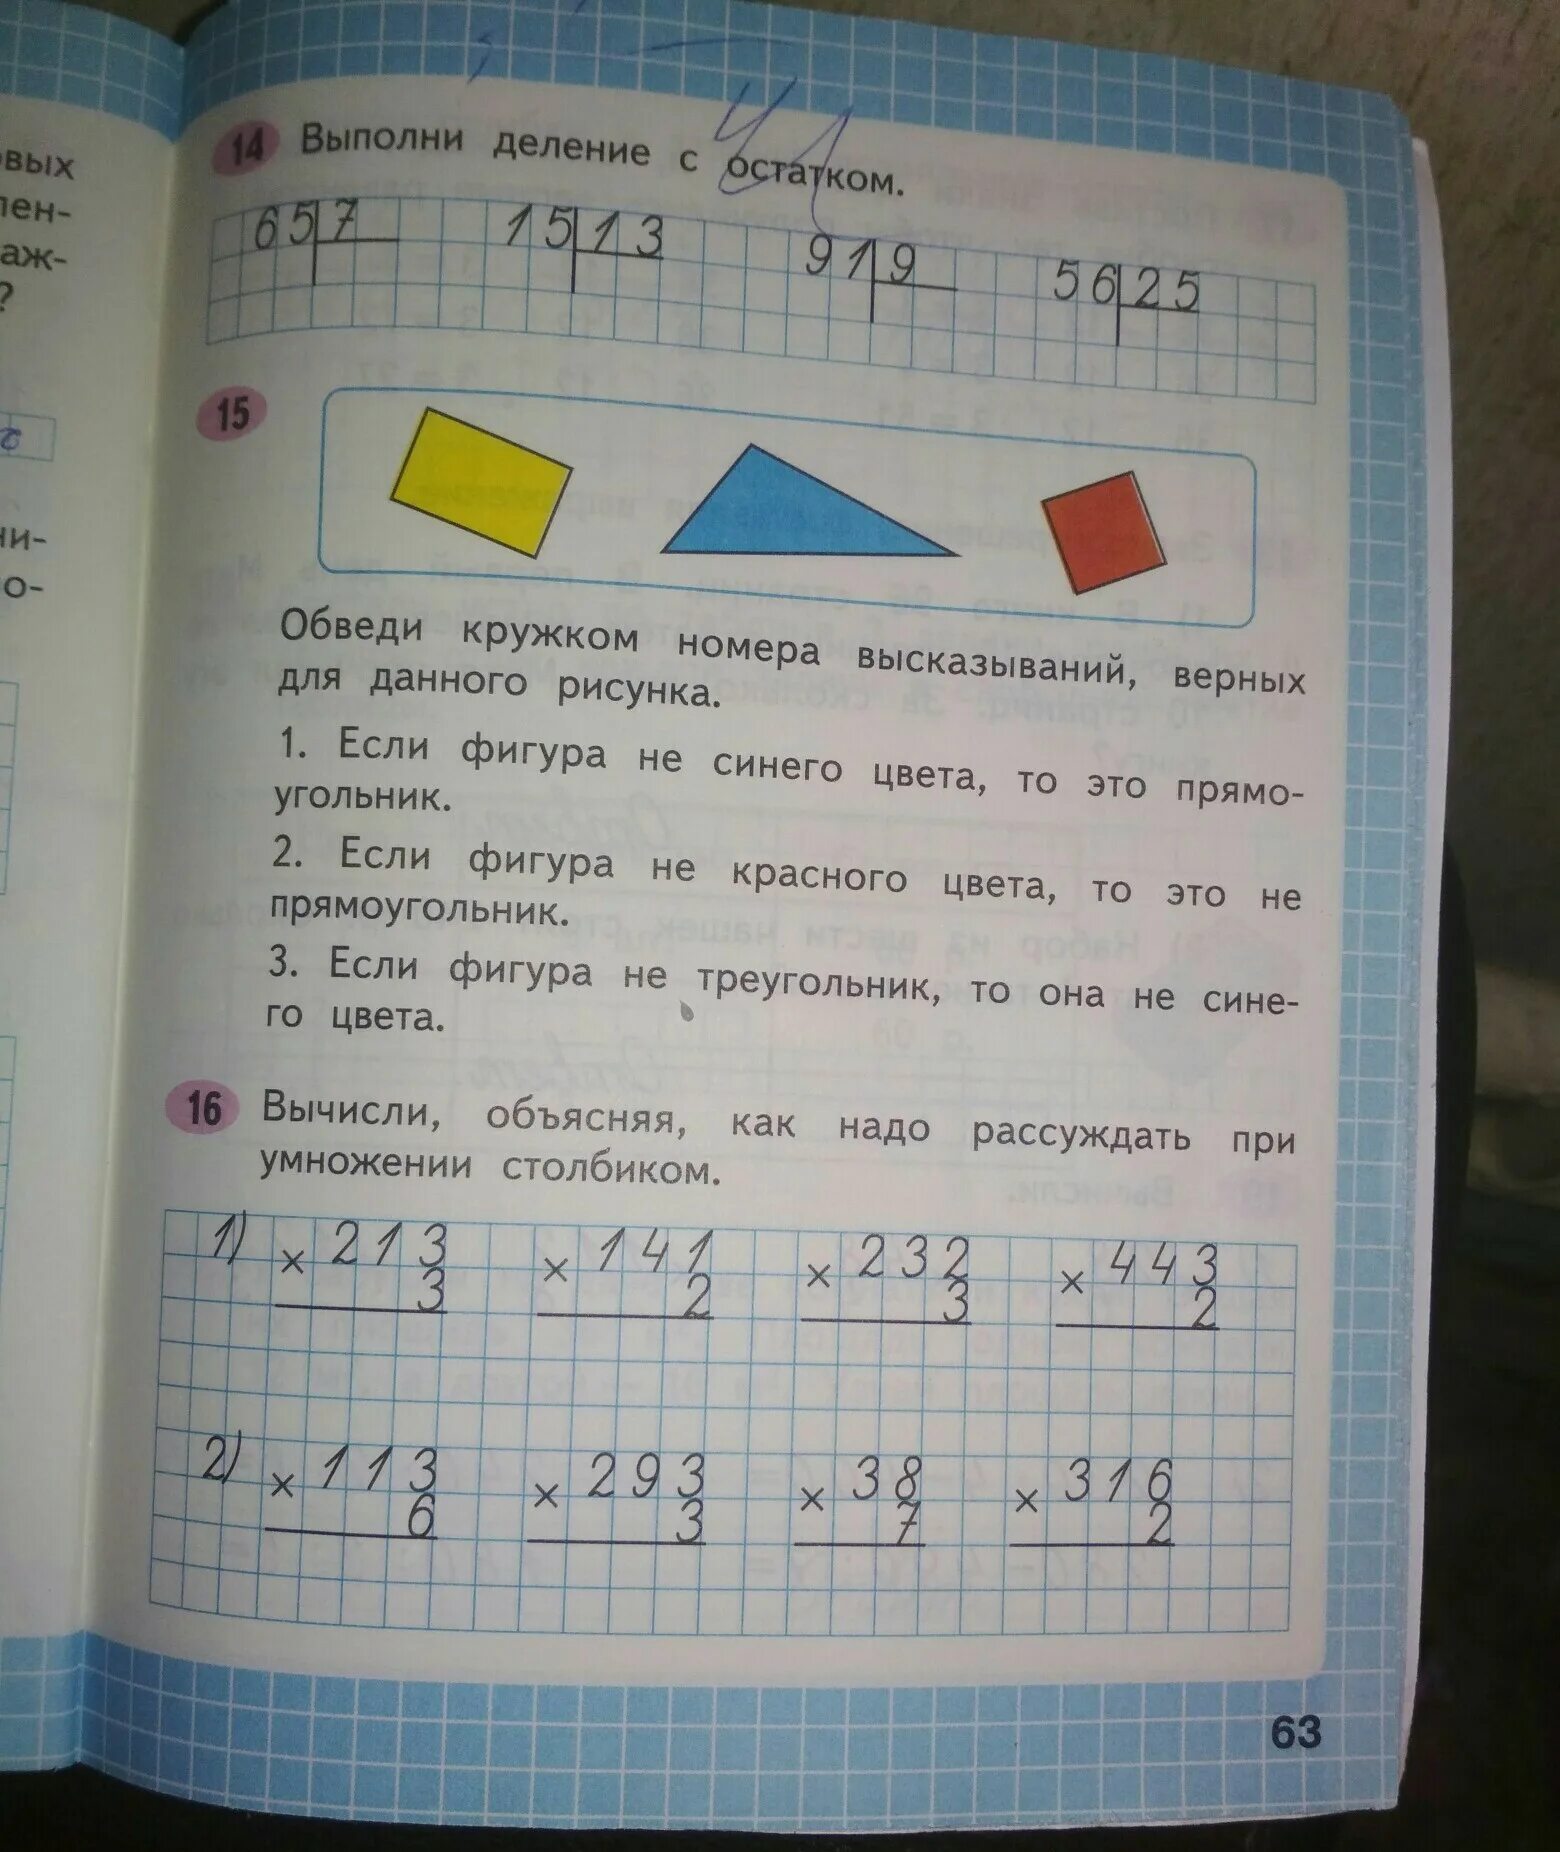 овых
лен-
аж-
?
2
ни-
о-
14 Выполни деление с остатком.
65 7 15 13 91 9 56 25
15
Обведи кружком номера высказываний, верных
для данного рисунка.
1. Если фигура не синего цвета, то это прямо-
угольник.
2. Если фигура не красного цвета, то это не
прямоугольник.
3. Если фигура не треугольник, то она не сине-
го цвета.
16 Вычисли, объясняя, как надо рассуждать при
умножении столбиком.
1) × 213 × 141 × 232 × 443
3 2 3 2
2) × 113 × 293 × 38 × 316
6 3 7 2
63